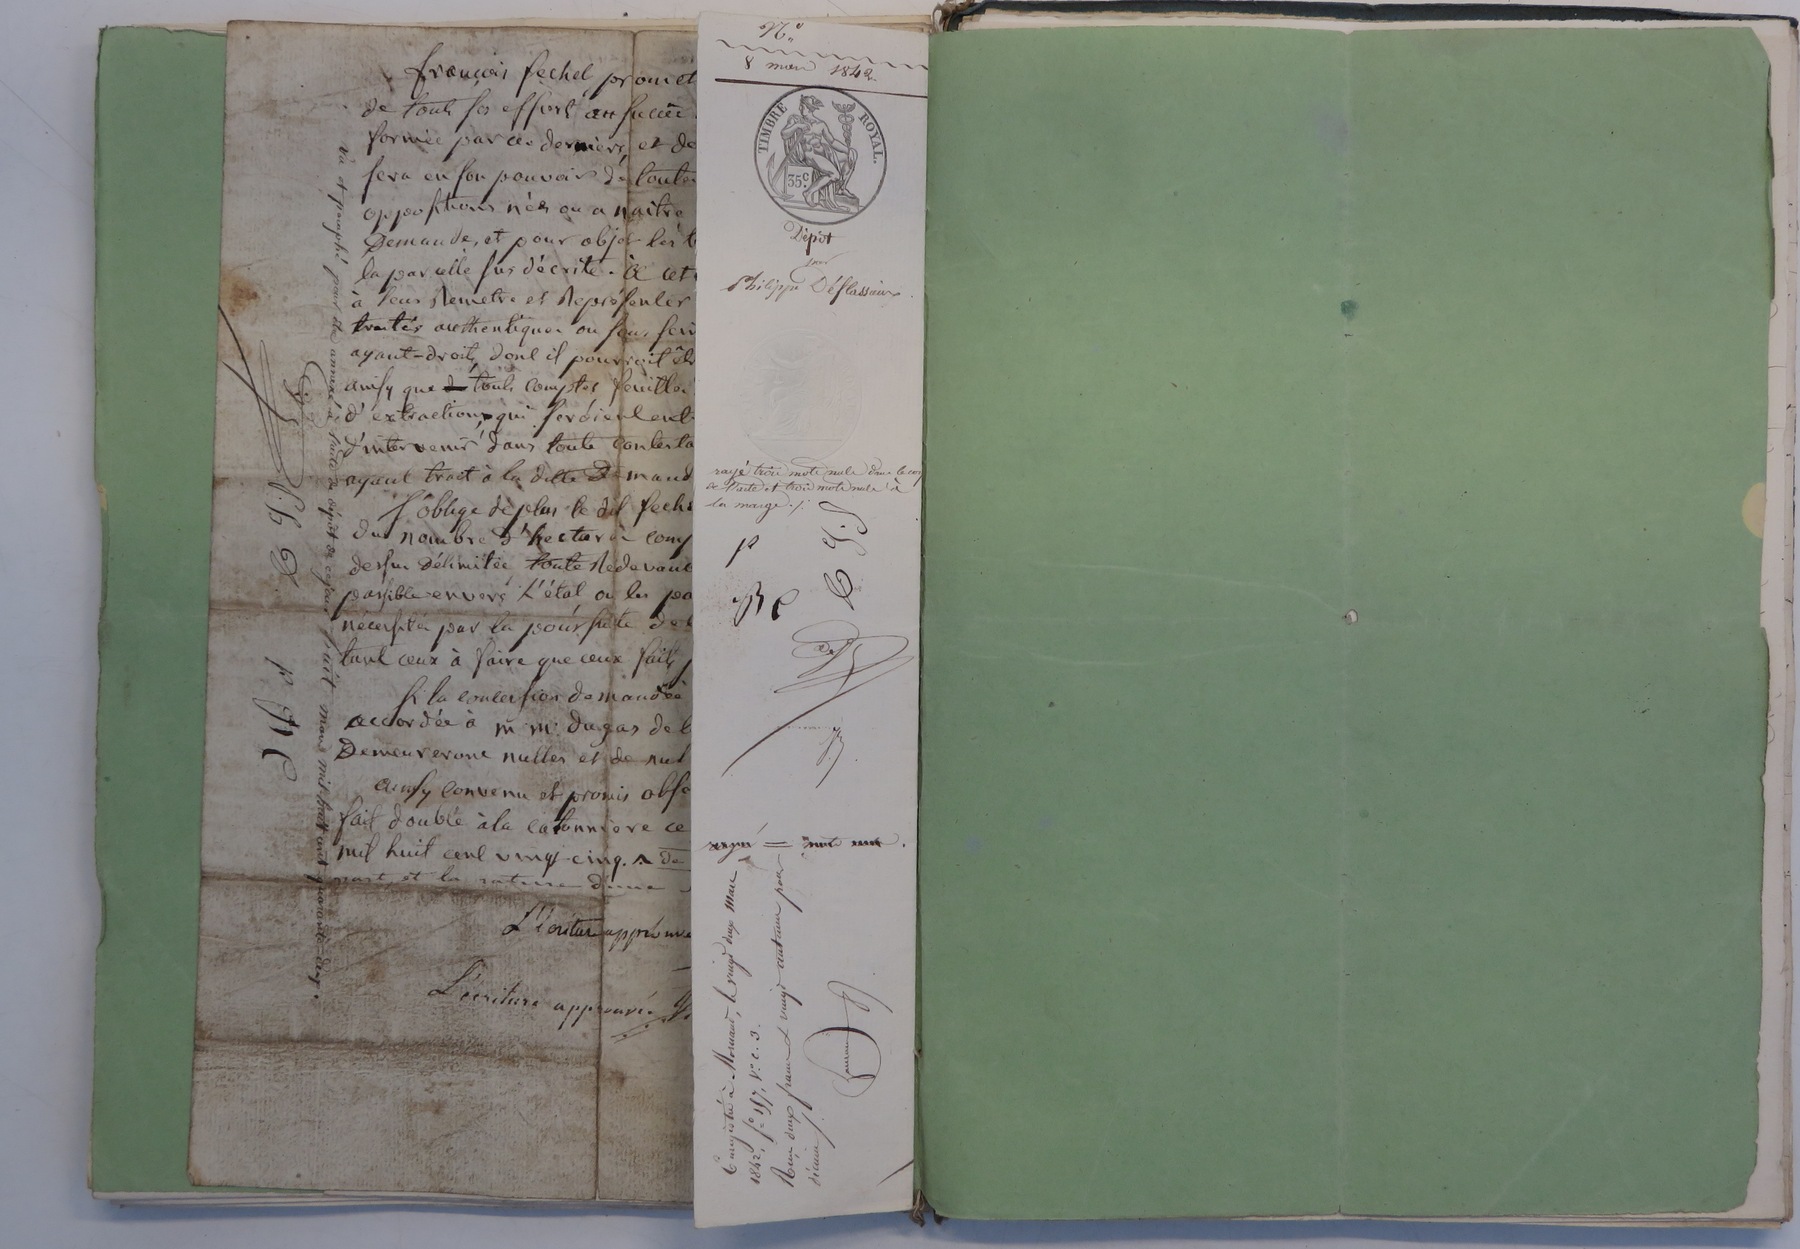 françois fechel promet
de touts ses effort au succès
formée par ce derniers et de
sera en son pouvoir de toutes
oppositions nées ou a naitre
Demande, et pour objet les
la parcelle sus décrite. à cet
à leur Remetre et Représenter
traités authentiques ou sous
ayant-droit, dont il pourroit
ainsy que touts comptes feuilles
d'extractions, qui seroient
d'intervenir dans toute Contesta
ayant trait à la ditte Demand
S'oblige de plus le dit fech
du nombre d'hectares comp
dessus Délimitée toute Redevance
passible envers L'état ou les
nécessités par la poursuite de
tant ceux à faire que ceux fait
Si la concession demandée
accordée à m.m. dugas de
Demeurerons nulles et de nul
ainsy convenu et promis
fait double à la catonniere ce
mil huit cent vingt-cinq. de
part, et la rature d'une
L'écriture approuvé
L'écriture approuvée
Vu et paraphé pour annexé à l'acte de dépôt de ce jour huit mars mil huit cent quarante-deux.
N.°
8 mars 1842.
TIMBRE ROYAL.
35.c
Dépôt
par
Philippe Déflassieux.
rayé trois mots nuls dans le corps
de l'acte et trois mots nuls à
la marge./.
rayé = mots nuls.
Enregistré à Mornant, le vingt deux mars
1842, f.° 197, V.° c. 3.
Reçu deux francs & vingt centimes pour
décime